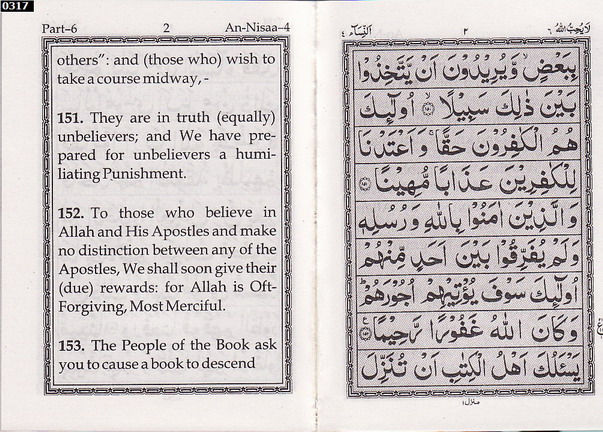 0317
Part–6 2 An-Nisaa–4
others”: and (those who) wish to
take a course midway, -
151. They are in truth (equally)
unbelievers; and We have pre-
pared for unbelievers a humi-
liating Punishment.
152. To those who believe in
Allah and His Apostles and make
no distinction between any of the
Apostles, We shall soon give their
(due) rewards: for Allah is Oft-
Forgiving, Most Merciful.
153. The People of the Book ask
you to cause a book to descend
لَا يُحِبُّ اللّٰهُ ٦ ٢ اَلنِّسَآء ٤
بِبَعْضٍ وَّيُرِيْدُوْنَ اَنْ يَّتَّخِذُوْا
بَيْنَ ذٰلِكَ سَبِيْلًا ۙ﴿١٥٠﴾ اُولٰٓئِكَ
هُمُ الْكٰفِرُوْنَ حَقًّا ۚ وَاَعْتَدْنَا
لِلْكٰفِرِيْنَ عَذَابًا مُّهِيْنًا ﴿١٥١﴾
وَالَّذِيْنَ اٰمَنُوْا بِاللّٰهِ وَرُسُلِهٖ
وَلَمْ يُفَرِّقُوْا بَيْنَ اَحَدٍ مِّنْهُمْ
اُولٰٓئِكَ سَوْفَ يُؤْتِيْهِمْ اُجُوْرَهُمْ ؕ
وَكَانَ اللّٰهُ غَفُوْرًا رَّحِيْمًا ﴿١٥٢﴾ ع
يَسْـَٔلُكَ اَهْلُ الْكِتٰبِ اَنْ تُنَزِّلَ
منزل ١